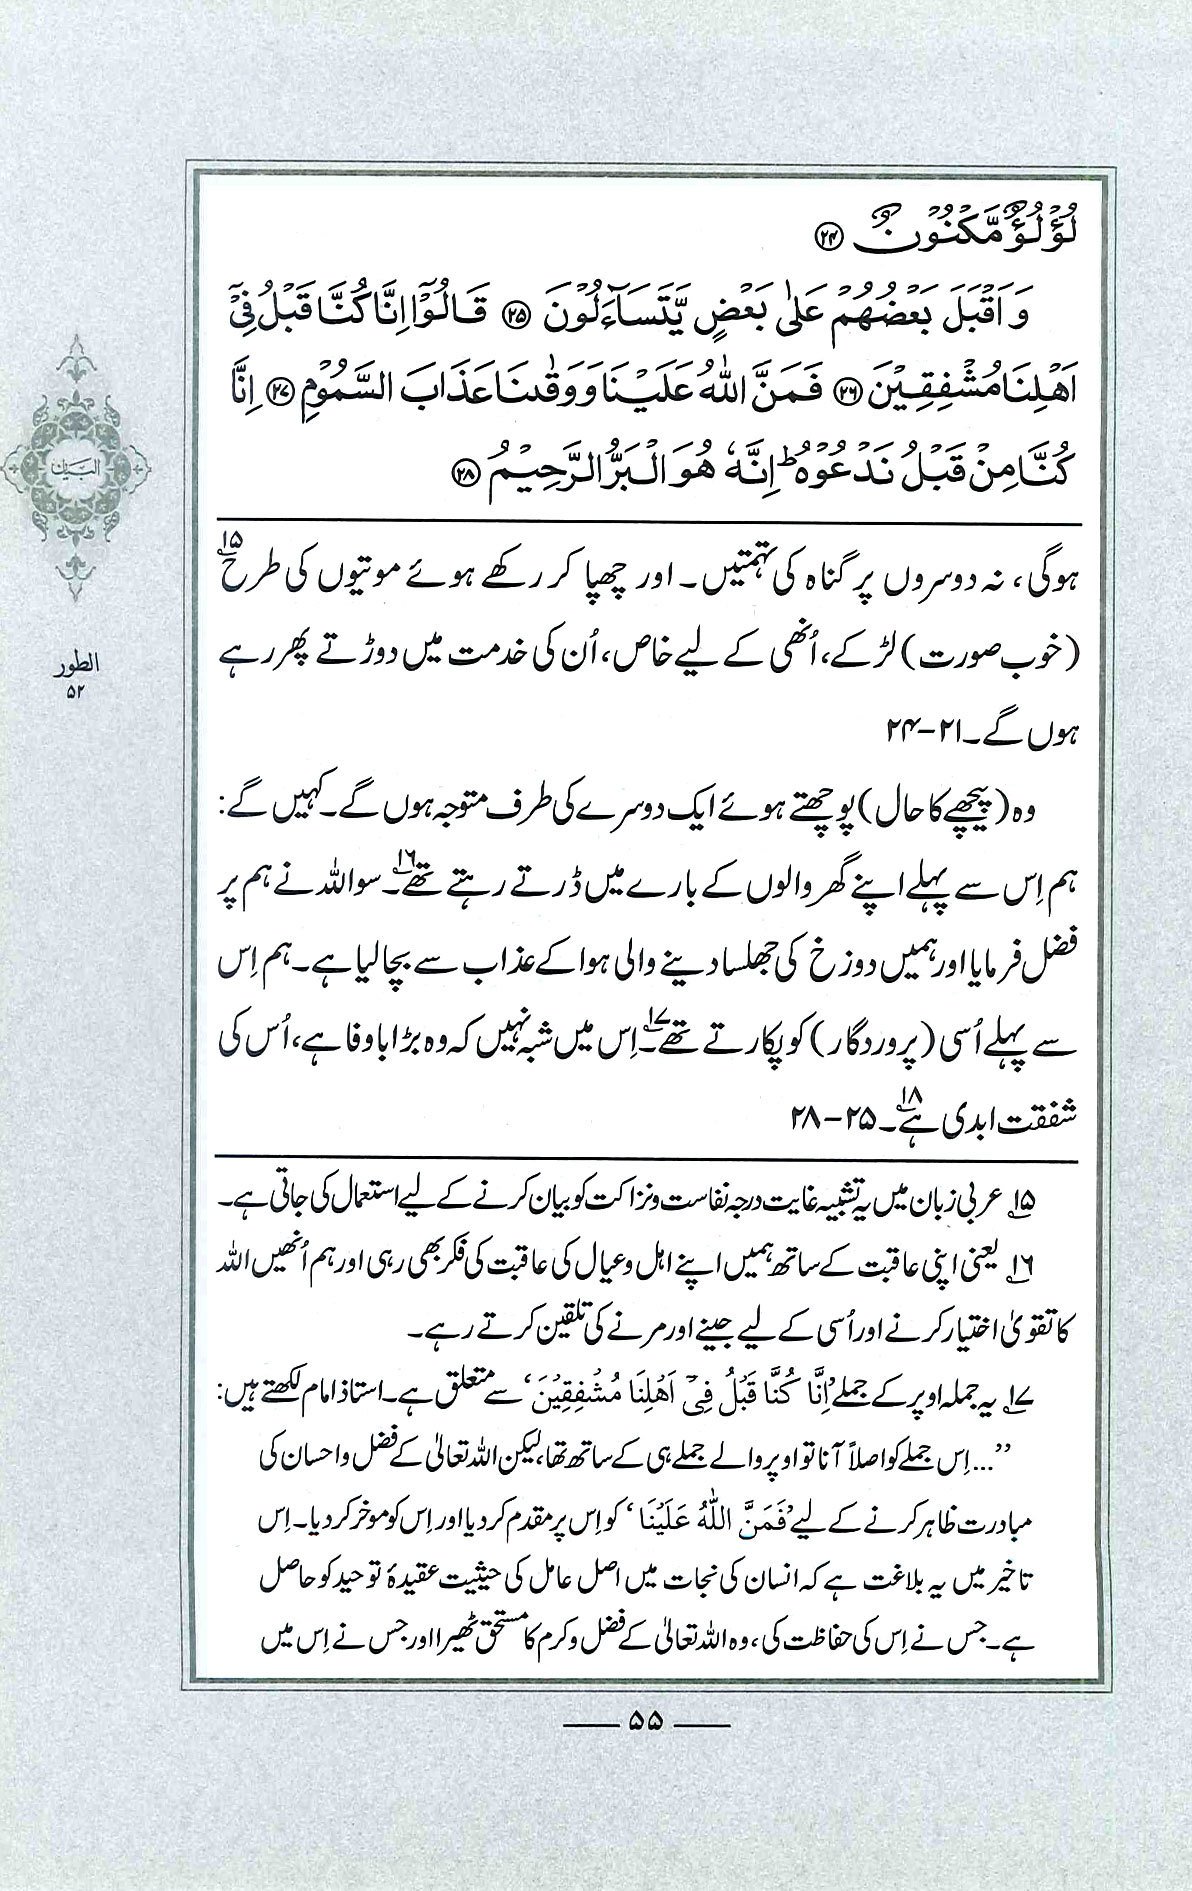 لُؤْلُؤٌ مَّكْنُوْنٌ ﴿۲۴﴾
وَاَقْبَلَ بَعْضُهُمْ عَلٰى بَعْضٍ يَّتَسَآءَلُوْنَ ﴿۲۵﴾ قَالُوْٓا اِنَّا كُنَّا قَبْلُ فِيْٓ
اَهْلِنَا مُشْفِقِيْنَ ﴿۲۶﴾ فَمَنَّ اللّٰهُ عَلَيْنَا وَوَقٰىنَا عَذَابَ السَّمُوْمِ ﴿۲۷﴾ اِنَّا
كُنَّا مِنْ قَبْلُ نَدْعُوْهُ ؕ اِنَّهٗ هُوَ الْبَرُّ الرَّحِيْمُ ﴿۲۸﴾
ہوگی، نہ دوسروں پر گناہ کی تہمتیں۔ اور چھپا کر رکھے ہوئے موتیوں کی طرح ۱۵
(خوب صورت) لڑکے، اُنھی کے لیے خاص، اُن کی خدمت میں دوڑتے پھر رہے
ہوں گے۔ ۲۱-۲۴
وہ (پیچھے کا حال) پوچھتے ہوئے ایک دوسرے کی طرف متوجہ ہوں گے۔ کہیں گے:
ہم اِس سے پہلے اپنے گھر والوں کے بارے میں ڈرتے رہتے تھے۔۱۶ سو اللہ نے ہم پر
فضل فرمایا اور ہمیں دوزخ کی جھلسا دینے والی ہوا کے عذاب سے بچا لیا ہے۔ ہم اِس
سے پہلے اُسی (پروردگار) کو پکارتے تھے۔۱۷ اِس میں شبہ نہیں کہ وہ بڑا باوفا ہے، اُس کی
شفقت ابدی ہے۔۱۸ ۲۵-۲۸
۱۵؎ عربی زبان میں یہ تشبیہ غایت درجہ نفاست و نزاکت کو بیان کرنے کے لیے استعمال کی جاتی ہے۔
۱۶؎ یعنی اپنی عاقبت کے ساتھ ہمیں اپنے اہل و عیال کی عاقبت کی فکر بھی رہی اور ہم اُنھیں اللہ
کا تقویٰ اختیار کرنے اور اُسی کے لیے جینے اور مرنے کی تلقین کرتے رہے۔
۱۷؎ یہ جملہ اوپر کے جملے ’اِنَّا كُنَّا قَبْلُ فِيْٓ اَهْلِنَا مُشْفِقِيْنَ‘ سے متعلق ہے۔ استاذ امام لکھتے ہیں:
”...اِس جملے کو اصلاً آنا تو اوپر والے جملے ہی کے ساتھ تھا، لیکن اللہ تعالیٰ کے فضل و احسان کی
مبادرت ظاہر کرنے کے لیے ’فَمَنَّ اللّٰهُ عَلَيْنَا‘ کو اِس پر مقدم کر دیا اور اِس کو موخر کر دیا۔ اِس
تاخیر میں یہ بلاغت ہے کہ انسان کی نجات میں اصل عامل کی حیثیت عقیدۂ توحید کو حاصل
ہے۔ جس نے اِس کی حفاظت کی، وہ اللہ تعالیٰ کے فضل و کرم کا مستحق ٹھیرا اور جس نے اِس میں
البیان
الطور
۵۲
۵۵